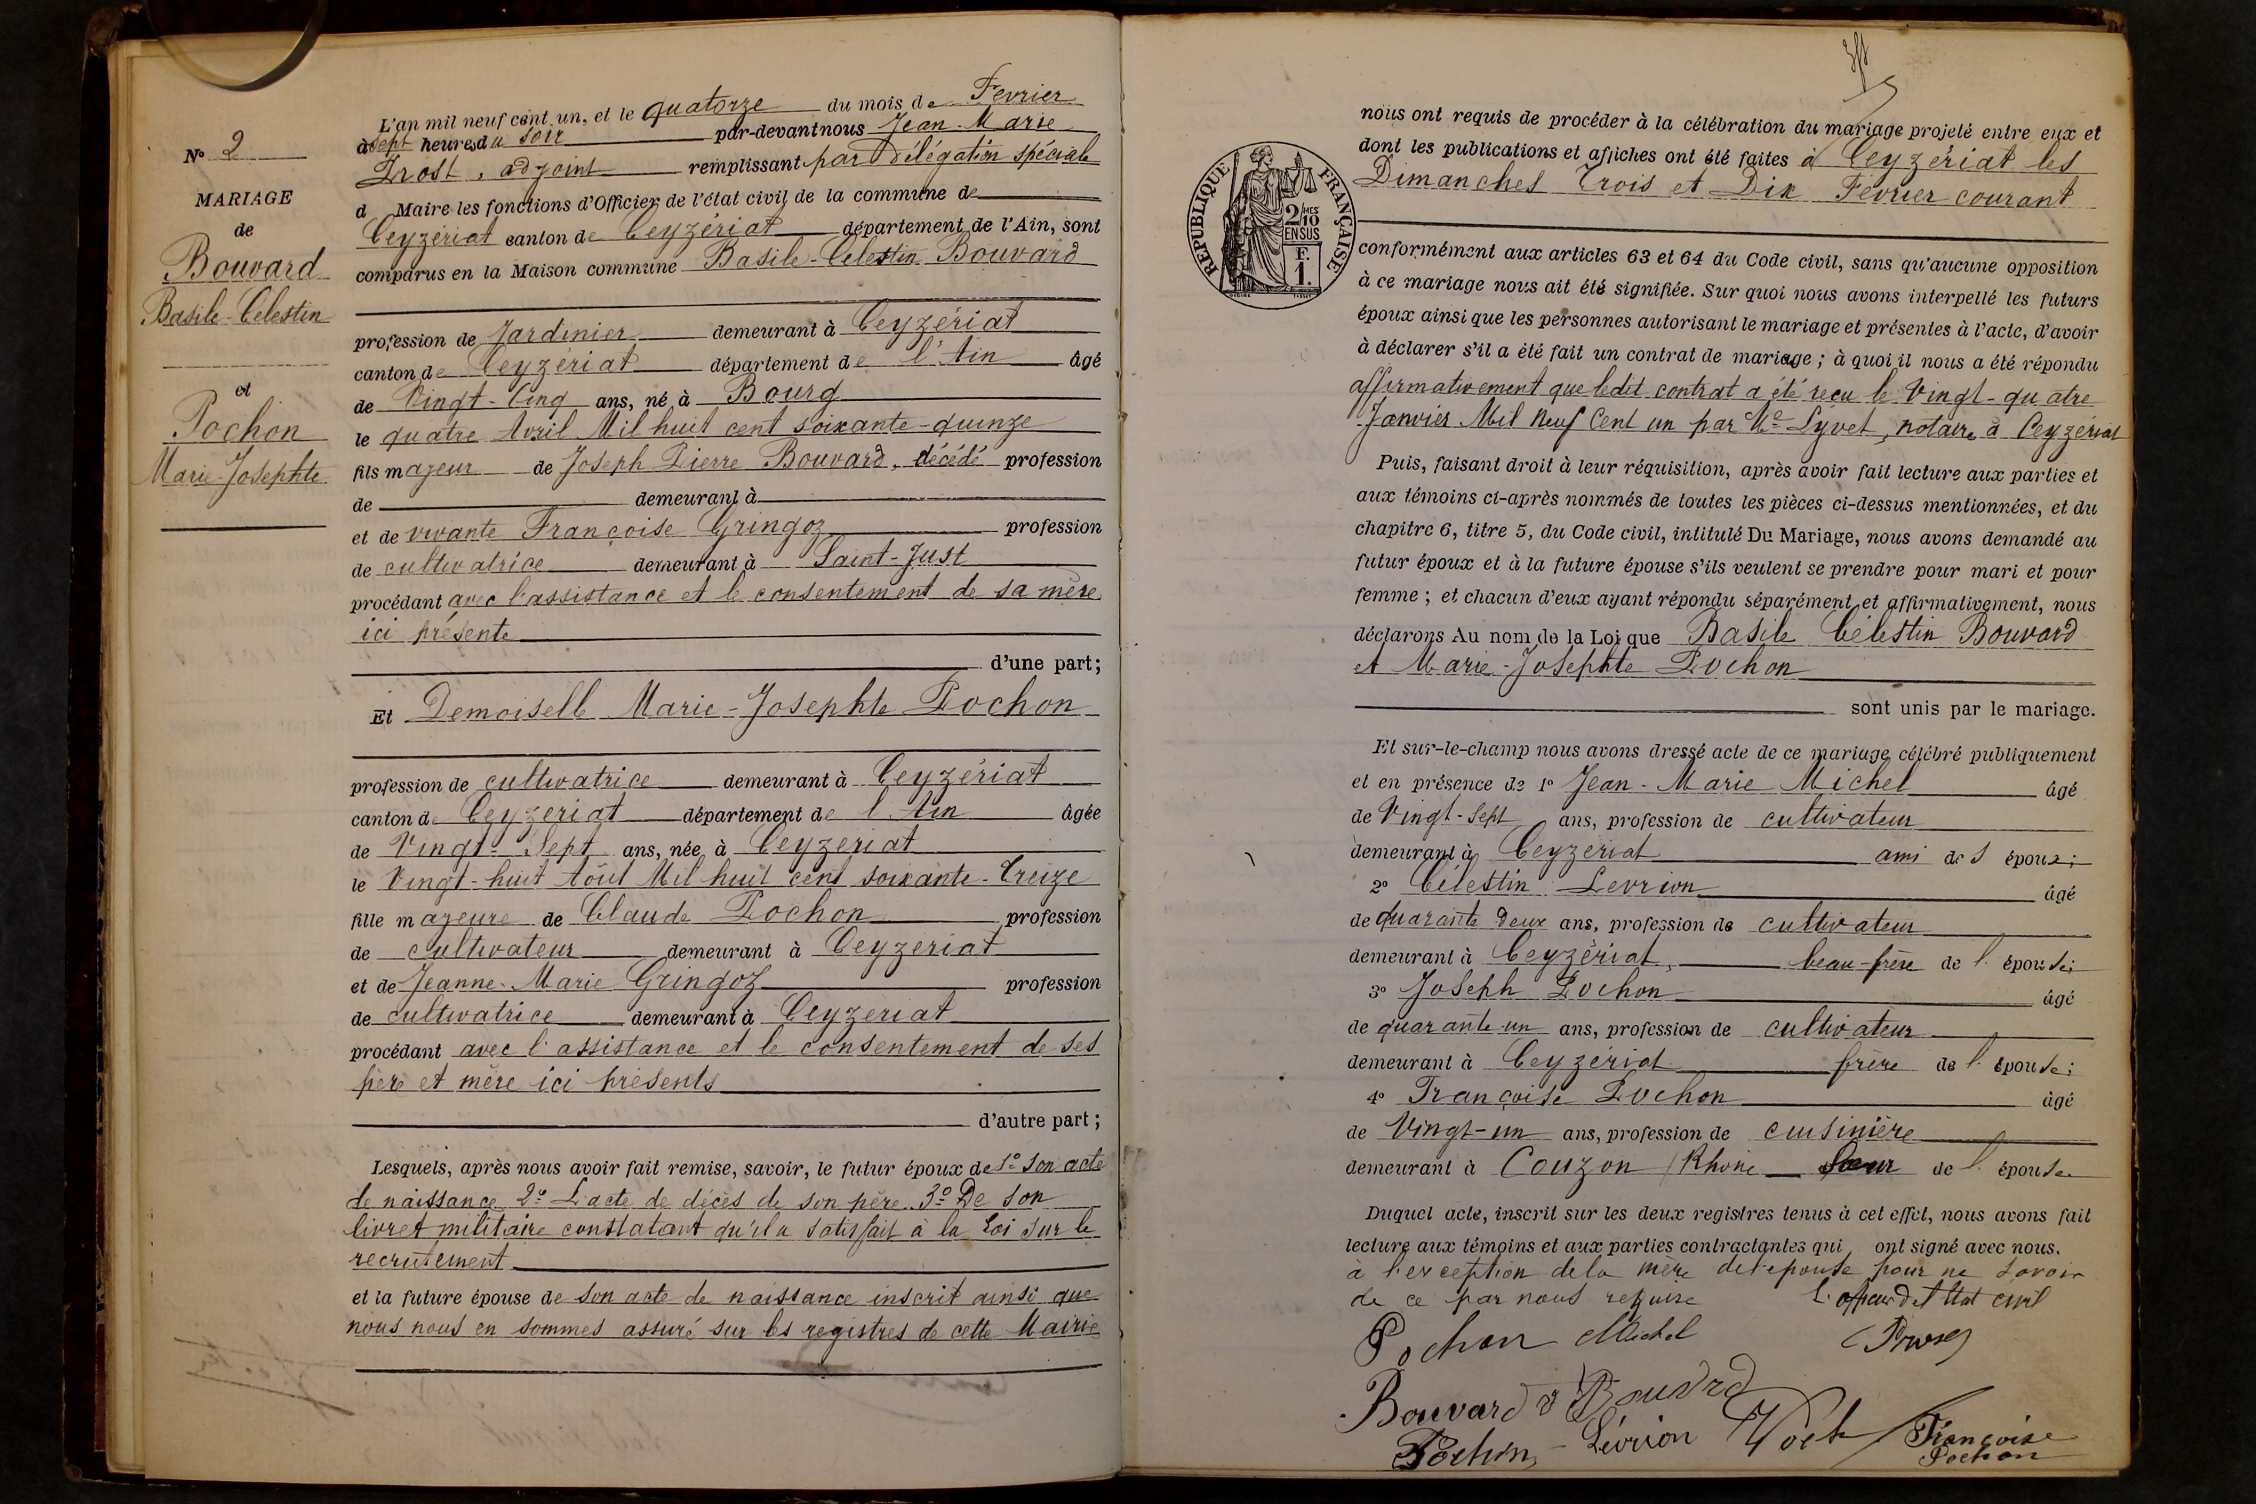 N° 2
MARIAGE
de
Bouvard
Basile-Célestin
et
Pochon
Marie-Josephte
L'an mil neuf cent un, et le quatorze du mois de Février
à sept heures du soir par-devant nous Jean-Marie
Prost, adjoint remplissant par délégation spéciale
d Maire les fonctions d'Officier de l'état civil de la commune de
Ceyzériat canton de Ceyzériat département de l'Ain, sont
comparus en la Maison commune Basile-Celestin Bouvard
profession de Jardinier demeurant à Ceyzériat
canton de Ceyzériat département de l'Ain âgé
de Vingt-Cinq ans, né à Bourg
le quatre Avril Mil huit cent soixante-quinze
fils majeur de Joseph Pierre Bouvard, décédé profession
de demeurant à
et de vivante Françoise Gringoz profession
de cultivatrice demeurant à Saint-Just
procédant avec l'assistance et le consentement de sa mère
ici présente
d'une part;
Et Demoiselle Marie-Josephte Pochon
profession de cultivatrice demeurant à Ceyzériat
canton de Ceyzeriat département de l'Ain âgée
de Vingt-Sept ans, née à Ceyzeriat
le Vingt-huit Août Mil huit cent soixante-Treize
fille majeure de Claude Pochon profession
de cultivateur demeurant à Ceyzeriat
et de Jeanne-Marie Gringoz profession
de cultivatrice demeurant à Ceyzeriat
procédant avec l'assistance et le consentement de ses
père et mère ici présents
d'autre part;
Lesquels, après nous avoir fait remise, savoir, le futur époux de 1° Son acte
de naissance 2° L'acte de décès de son père. 3° De son
livret militaire constatant qu'il a satisfait à la Loi sur le
recrutement
et la future épouse de son acte de naissance inscrit ainsi que
nous nous en sommes assuré sur les registres de cette Mairie
RÉPUBLIQUE FRANÇAISE
2/10 MES
EN SUS
F.
1.
nous ont requis de procéder à la célébration du mariage projeté entre eux et
dont les publications et affiches ont été faites à Ceyzériat les
Dimanches Trois et Dix Fevrier courant
conformément aux articles 63 et 64 du Code civil, sans qu'aucune opposition
à ce mariage nous ait été signifiée. Sur quoi nous avons interpellé les futurs
époux ainsi que les personnes autorisant le mariage et présentes à l'acte, d'avoir
à déclarer s'il a été fait un contrat de mariage ; à quoi il nous a été répondu
affirmativement que ledit contrat a été reçu le Vingt-quatre
Janvier Mil Neuf Cent un par Me Lyvet, notaire à Ceyzériat
Puis, faisant droit à leur réquisition, après avoir fait lecture aux parties et
aux témoins ci-après nommés de toutes les pièces ci-dessus mentionnées, et du
chapitre 6, titre 5, du Code civil, intitulé Du Mariage, nous avons demandé au
futur époux et à la future épouse s'ils veulent se prendre pour mari et pour
femme ; et chacun d'eux ayant répondu séparément et affirmativement, nous
déclarons Au nom de la Loi que Basile Célestin Bouvard
et Marie-Josephte Pochon
sont unis par le mariage.
Et sur-le-champ nous avons dressé acte de ce mariage célébré publiquement
et en présence de 1° Jean-Marie Michel âgé
de Vingt-Sept ans, profession de cultivateur
demeurant à Ceyzeriat ami des époux;
2° Célestin Levrion âgé
de quarante deux ans, profession de cultivateur
demeurant à Ceyzériat, beau-frère de l'épouse;
3° Joseph Pochon âgé
de quarante-un ans, profession de cultivateur
demeurant à Ceyzériat frère de l'épouse;
4° Françoise Pochon âgé
de Vingt-un ans, profession de cuisinière
demeurant à Couzon (Rhône Sœur de l'épouse
Duquel acte, inscrit sur les deux registres tenus à cet effet, nous avons fait
lecture aux témoins et aux parties contractantes qui ont signé avec nous.
à l'exception de la mère de l'epouse pour ne savoir
de ce par nous requise L'officier de l'Etat civil
Pochon Michel Prost
Bouvard Bouvard
Pochon Lévrion Françoise
Pochon